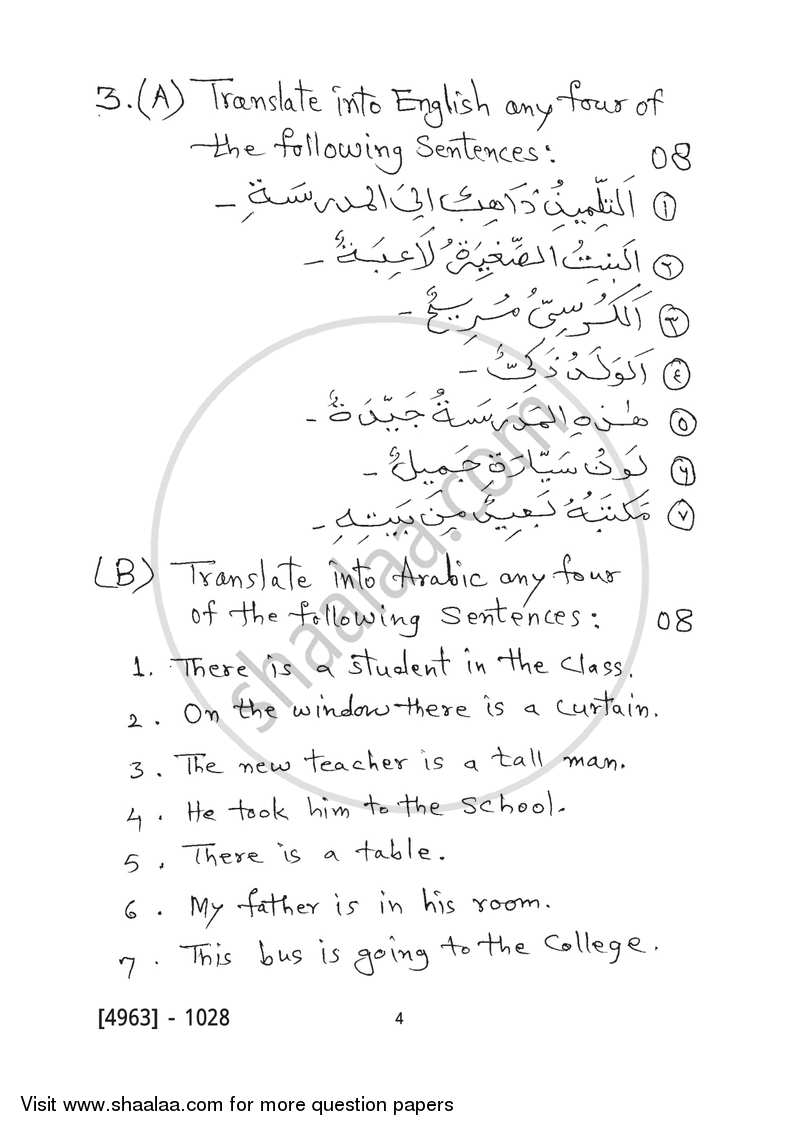 3. (A) Translate into English any four of
the following Sentences: 08
① اَلتِّلْمِيذُ ذَاهِبٌ اِلَى المَدرَسَةِ -
② اَلبِنتُ الصَّغِيرَةُ لَاعِبَةٌ -
③ اَلكُرْسِىُّ مُرِيحٌ -
④ اَلوَلَدُ ذَكِىٌّ -
⑤ هٰذِهِ المَدرَسَةُ جَيِّدَةٌ -
⑥ لَونُ سَيَّارَةٍ جَمِيلٌ -
⑦ مَكتَبُهُ بَعِيدٌ مِن بَيتِهِ -
(B) Translate into Arabic any four
of the following Sentences: 08
1. There is a student in the class.
2. On the window there is a curtain.
3. The new teacher is a tall man.
4. He took him to the school.
5. There is a table.
6. My father is in his room.
7. This bus is going to the College.
[4963] - 1028 4
Visit www.shaalaa.com for more question papers
shaalaa.com